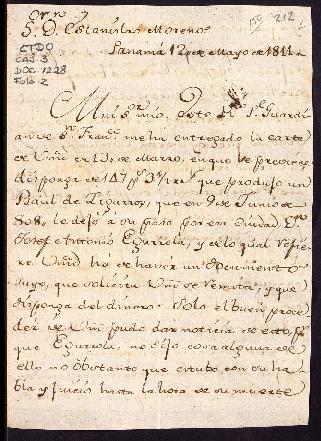 Orn
212
150
S. D. Estanislao Moreno
Panamá 12 de Mayo de 1811
CTDO
CAJ. 3
DOC 1228
Fol. 2
Mui Sor mio. el Pe Guardi
an de Sn Franco me há entregado la carta
de Umd de 13 de Marzo, en que se
disponga de 147 ps 3½ rs que produjo un
Baul de que en 9 de Junio de
808, le dejó á su paso por esa Ciudad, Dn
Josef Antonio Eguriola, y de lo qual refie
re Umd há de haver un documento
suyo, que solicita Umd se remita, y que
disponga del dinero. Solo el buen proce
der de Umd pudo dar noticia de esto, ps
que Eguriola, no dijo cosa alguna de
ello no obstante que estubo con su ha
bla y juicio hasta la hora de su muerte